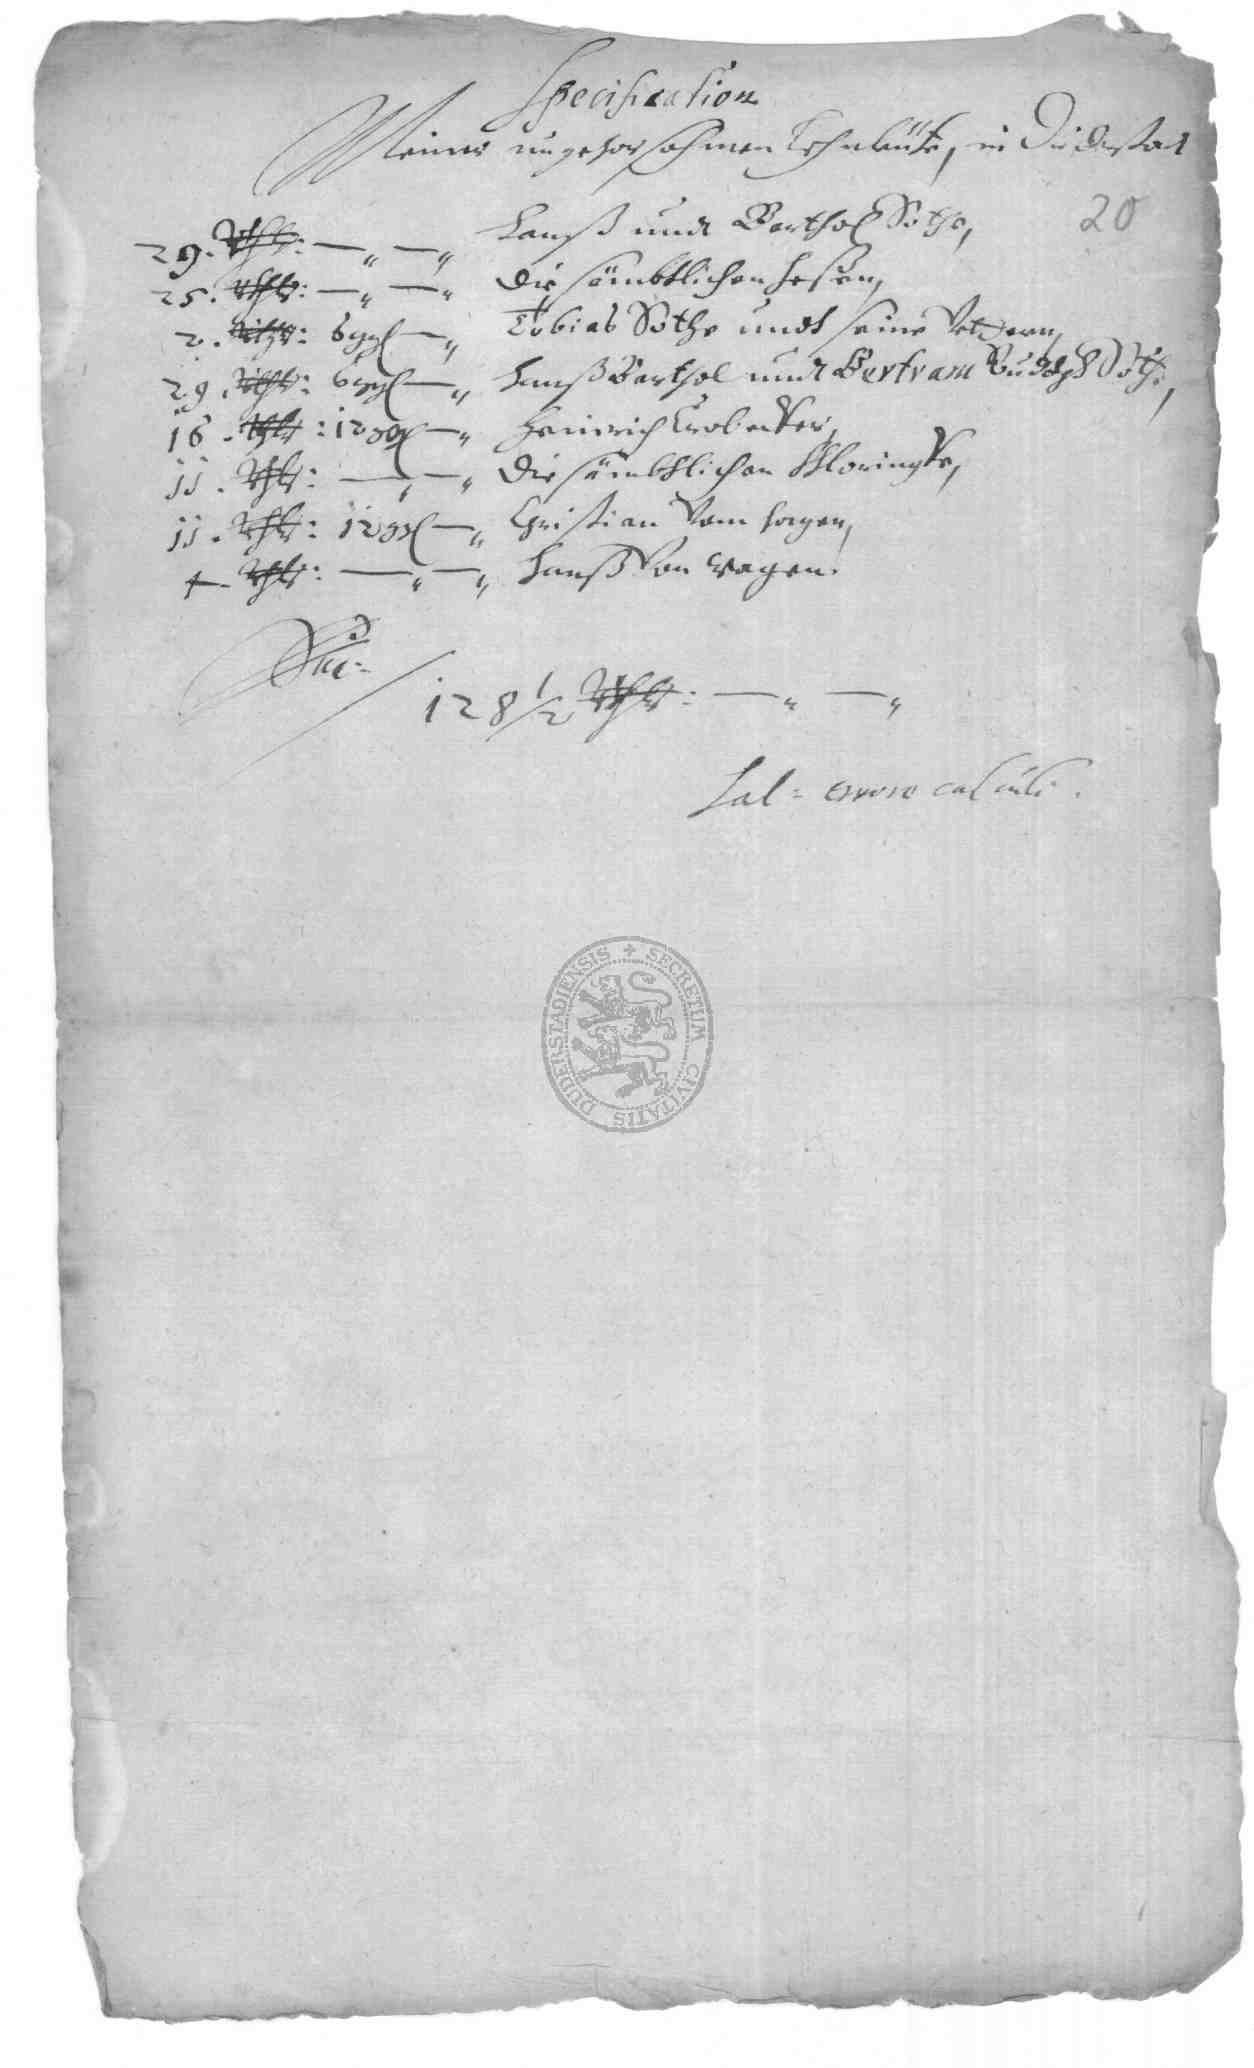 Specification
Meiner ungehorsahmen Lehnleüte, in Duderstat
20
29. Rthlr: — „ — „ Hanß undt Barthol Söthe,
25. Rthlr: — „ — „ Die sämbtlichen Hesen,
2. Rthlr: 6 ggl — „ Tobias Söthe undt seine Vettern,
29. Rthlr: 6 ggl — „ Hanß Barthol undt Bertram Söthe,
16. Rthlr: 12 ggl — „ Heinrich
11. Rthlr: — „ — „ Die sämbtlichen
11. Rthlr: 12 ggl — „ Christian Vom Hagen,
4. Rthlr: — „ — „ Hanß Von Wagen.
128 1/2 Rthlr: — „ — „
Sal= errore calculi.
SECRETUM CIVITATIS DUDERSTADIENSIS